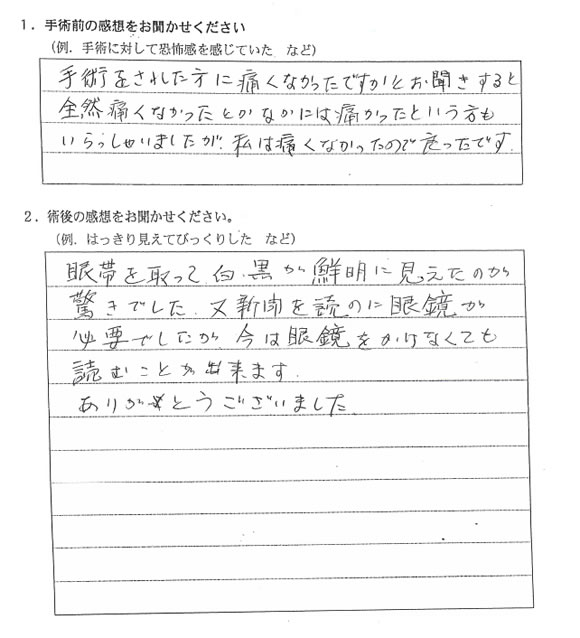 １．手術前の感想をお聞かせください
（例．手術に対して恐怖感を感じていた　など）
手術をされた方に痛くなかったですかとお聞きすると
全然痛くなかったとかなかには痛かったという方も
いらっしゃいましたが、私は痛くなかったので良ったです.
２．術後の感想をお聞かせください。
（例．はっきり見えてびっくりした　など）
眼帯を取って 白.黒が鮮明に見えたのが
驚きでした. 又新聞を読のに眼鏡が
必要でしたが 今は眼鏡をかけなくても
読むことが出来ます.
ありがとうございました.